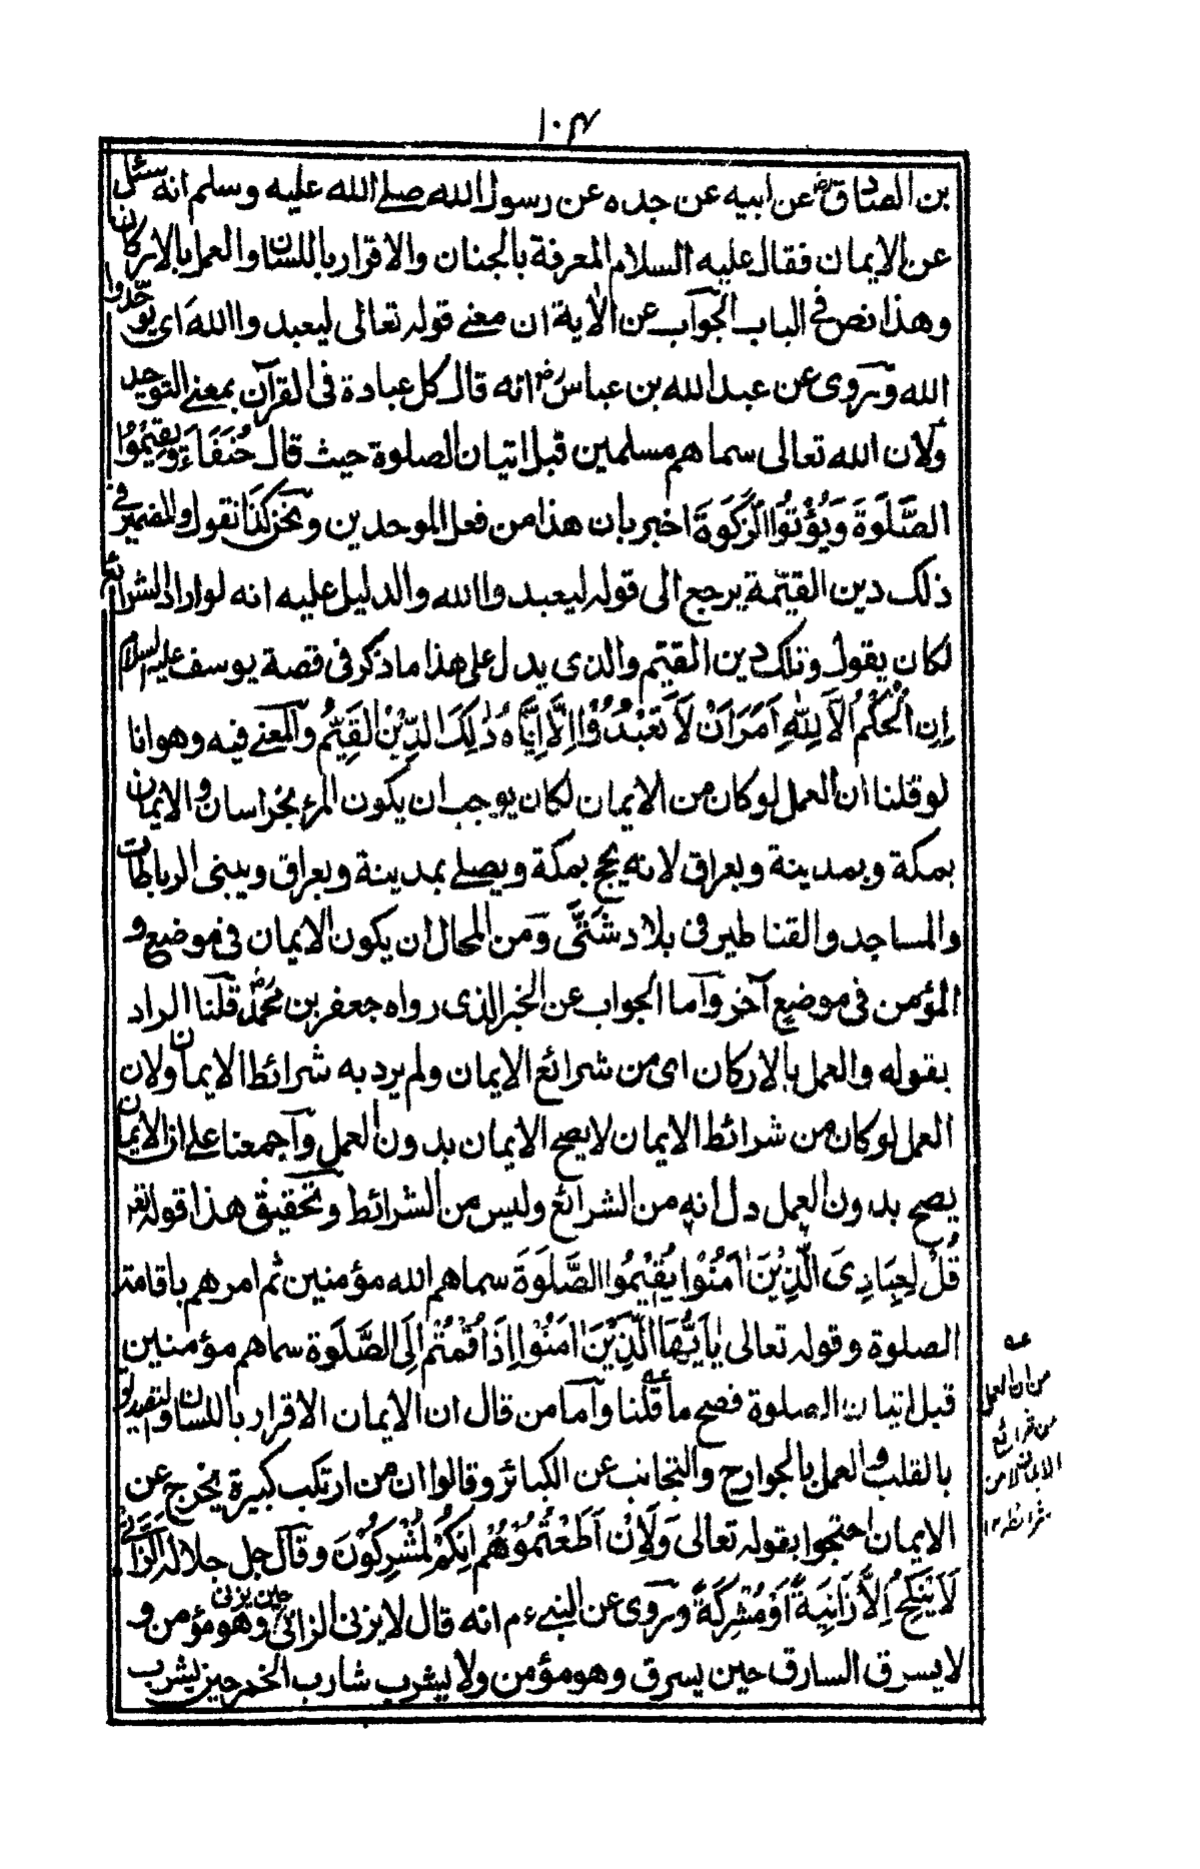 ۱۰۴
بن الصادق رض عن ابيه عن جده عن رسول الله صلے الله عليه وسلم انه سئل
عن الايمان فقال عليه السلام المعرفة بالجنان والاقرار باللسان والعمل بالاركان
وهذا نص فى الباب الجواب عن الاٰية ان معنے قوله تعالى ليعبدوا الله اى يوحّدوا
الله وروى عن عبد الله بن عباس رض انه قال كل عبادة فى القرآن بمعنے التوحيد
ولان الله تعالى سماهم مسلمين قبل اتيان الصلوة حيث قال حُنَفَاءَ وَيُقِيْمُوْا
الصَّلٰوةَ وَيُؤْتُوا الزَّكٰوةَ اخبر بان هذا من فعل الموحدين ونحن كذا نقول والضمير فى
ذلك دين القيّمة يرجع الى قوله ليعبدوا الله والدليل عليه انه لو اراد الشرائع
لكان يقول وتلك دين القيّم والذى يدل على هذا ما ذكر فى قصة يوسف عليه السلام
اِنِ الْحُكْمُ اِلَّا لِلّٰهِ اَمَرَ اَنْ لَا تَعْبُدُوْا اِلَّا اِيَّاهُ ذٰلِكَ الدِّيْنُ الْقَيِّمُ والمعنے فيه وهو انا
لو قلنا ان العمل لو كان من الايمان لكان يوجب ان يكون المرء بخراسان والايمان
بمكة وبمدينة وبعراق لانه يحج بمكة ويصلے بمدينة وبعراق ويبنى الرباطات
والمساجد والقناطير فى بلاد شَتّٰى ومن المحال ان يكون الايمان فى موضع و
المؤمن فى موضع آخر واما الجواب عن الخبر الذى رواه جعفر بن محمد رض قلنا المراد
بقوله والعمل بالاركان اى من شرائع الايمان ولم يرد به شرائط الايمان ولان
العمل لو كان من شرائط الايمان لا يصح الايمان بدون العمل واجمعنا على ان الايمان
يصح بدون العمل دل انه من الشرائع وليس من الشرائط وتحقيق هذا قوله تع
قُلْ لِعِبَادِىَ الَّذِيْنَ اٰمَنُوْا يُقِيْمُوا الصَّلٰوةَ سماهم الله مؤمنين ثم امرهم باقامة
الصلوة وقوله تعالى يٰاَيُّهَا الَّذِيْنَ اٰمَنُوْا اِذَا قُمْتُمْ اِلَى الصَّلٰوةِ سماهم مؤمنين
قبل اتيان الصلوة فصح ما قلنا عه واما من قال ان الايمان الاقرار باللسان والتصديق
بالقلب والعمل بالجوارح والتجانب عن الكبائر وقالوا ان من ارتكب كبيرة يخرج عن
الايمان احتجوا بقوله تعالى وَلَاِنْ اَطَعْتُمُوْهُمْ اِنَّكُمْ لَمُشْرِكُوْنَ وقال جل جلاله اَلزَّانِىْ
لَا يَنْكِحُ اِلَّا زَانِيَةً اَوْ مُشْرِكَةً وروى عن النبے ءم انه قال لا يزنى الزانى حين يزنى وهو مؤمن و
لا يسرق السارق حين يسرق وهو مؤمن ولا يشرب شارب الخمر حين يشرب
عه
من ان العمل
من شرائع
الايمان لا من
شرائطه ۱۲